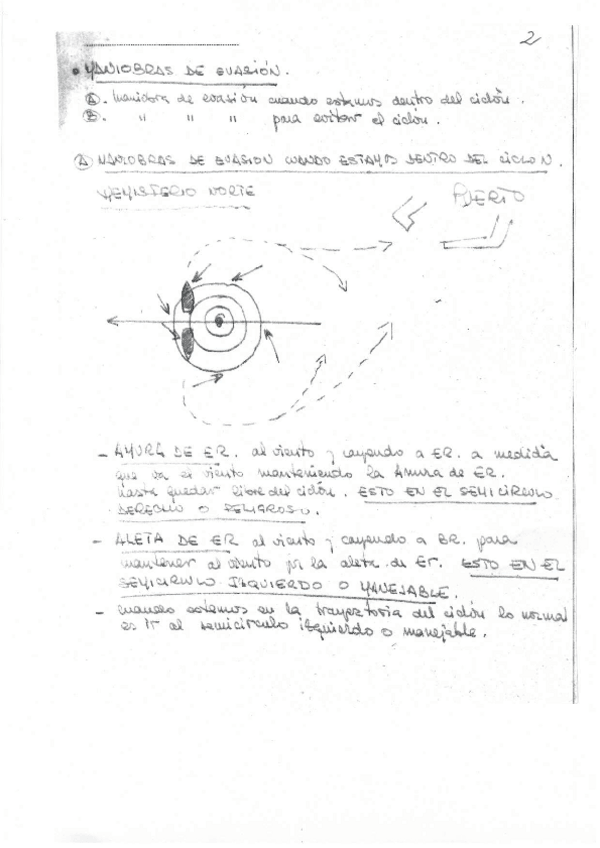 2
• MANIOBRAS DE EVASIÓN.
Ⓐ. Maniobra de evasión cuando estamos dentro del ciclón.
Ⓑ. " " " para evitar el ciclón.
Ⓐ MANIOBRAS DE EVASION CUANDO ESTAMOS DENTRO DEL CICLON.
HEMISFERIO NORTE
PUERTO
- AMURA DE ER. al viento y cayendo a ER. a medida
que va el viento manteniendo la Amura de ER.
hasta quedar libre del ciclón. ESTO EN EL SEMICIRCULO
DERECHO O PELIGROSO.
- ALETA DE ER al viento y cayendo a BR. para
mantener al viento por la aleta de Er. ESTO EN EL
SEMICIRCULO IZQUIERDO O MANEJABLE.
- cuando estemos en la trayectoria del ciclón lo normal
es ir al semicirculo izquierdo o manejable.